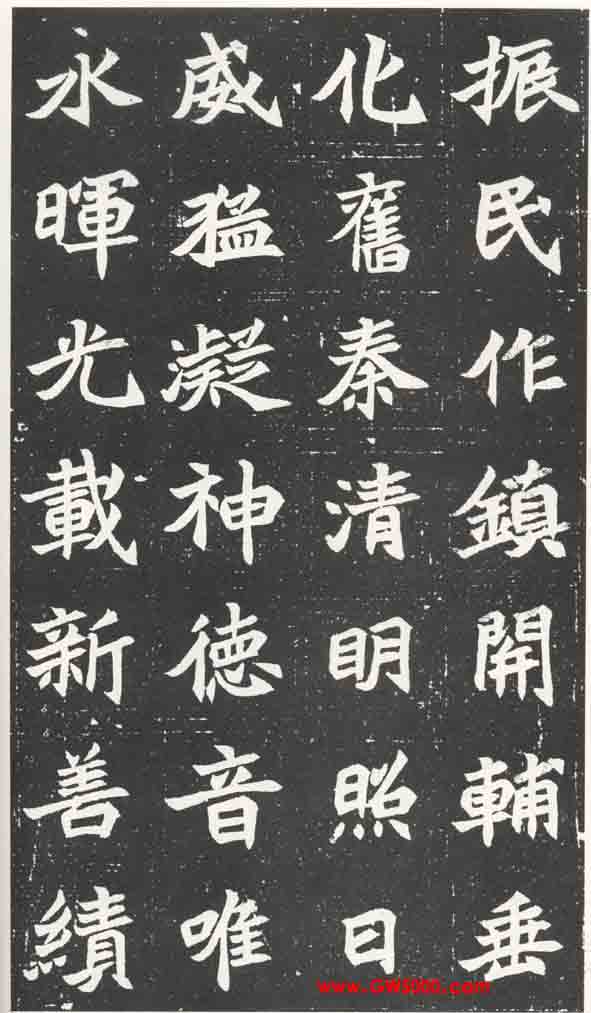 振民作鎮開輔垂
化舊秦清明照日
威猛凝神德音唯
永暉光載新善績
www.GW5000.com